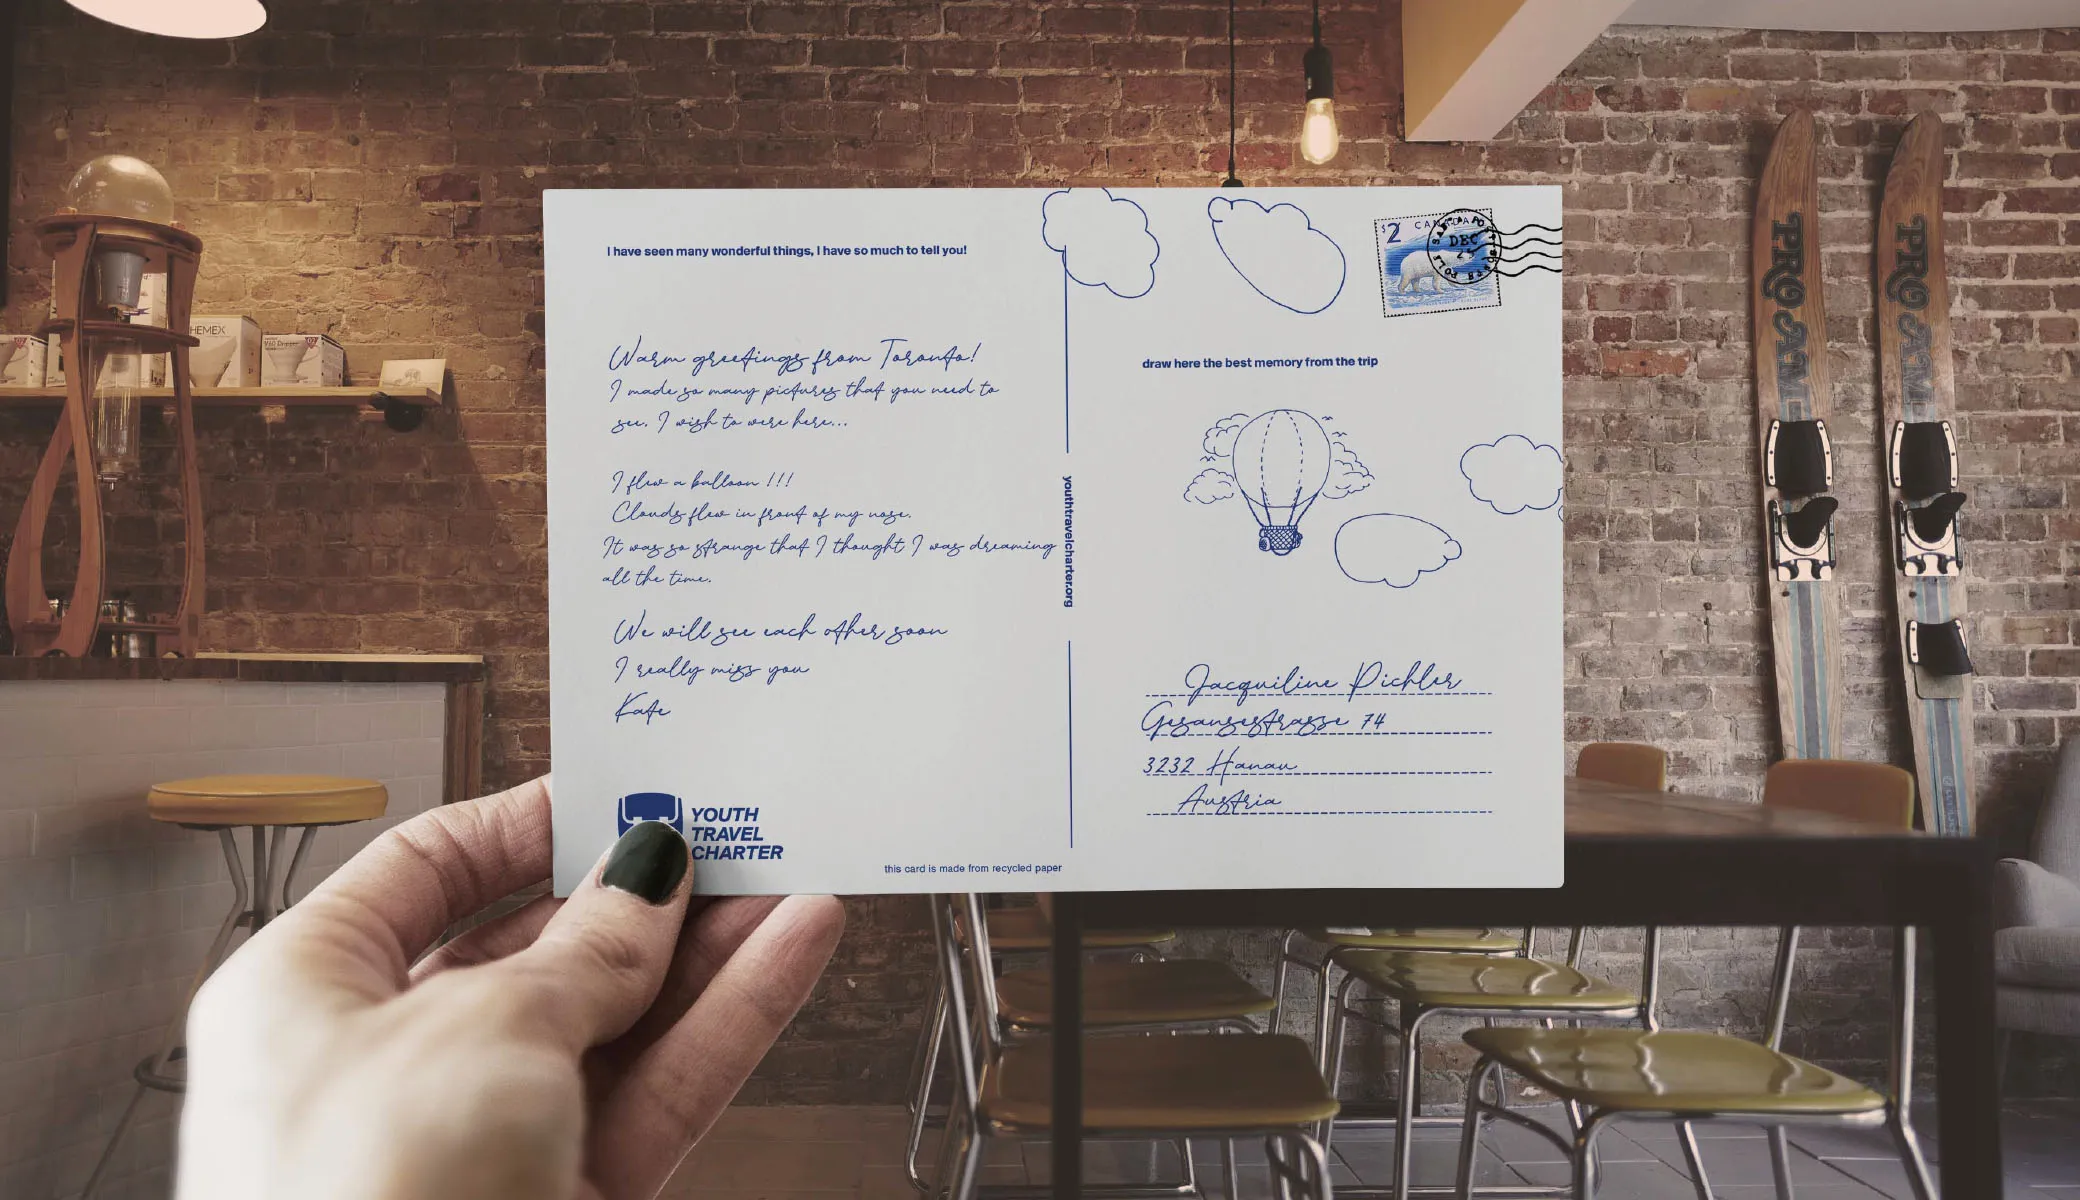 I have seen many wonderful things, I have so much to tell you!
Warm greetings from Toronto!
I made so many pictures that you need to
see. I wish to were here...
I flew a balloon !!!
Clouds flew in front of my nose.
It was so strange that I thought I was dreaming
all the time.
We will see each other soon
I really miss you
Kate
YOUTH
TRAVEL
CHARTER
this card is made from recycled paper
youthtravelcharter.org
$2 CANADA
DEC
25
draw here the best memory from the trip
Jacquiline Pichler
Gesangestrasse 74
3232 Hanau
Austria
HEMEX
V60 Dripper
02
PRO AM
PRO AM